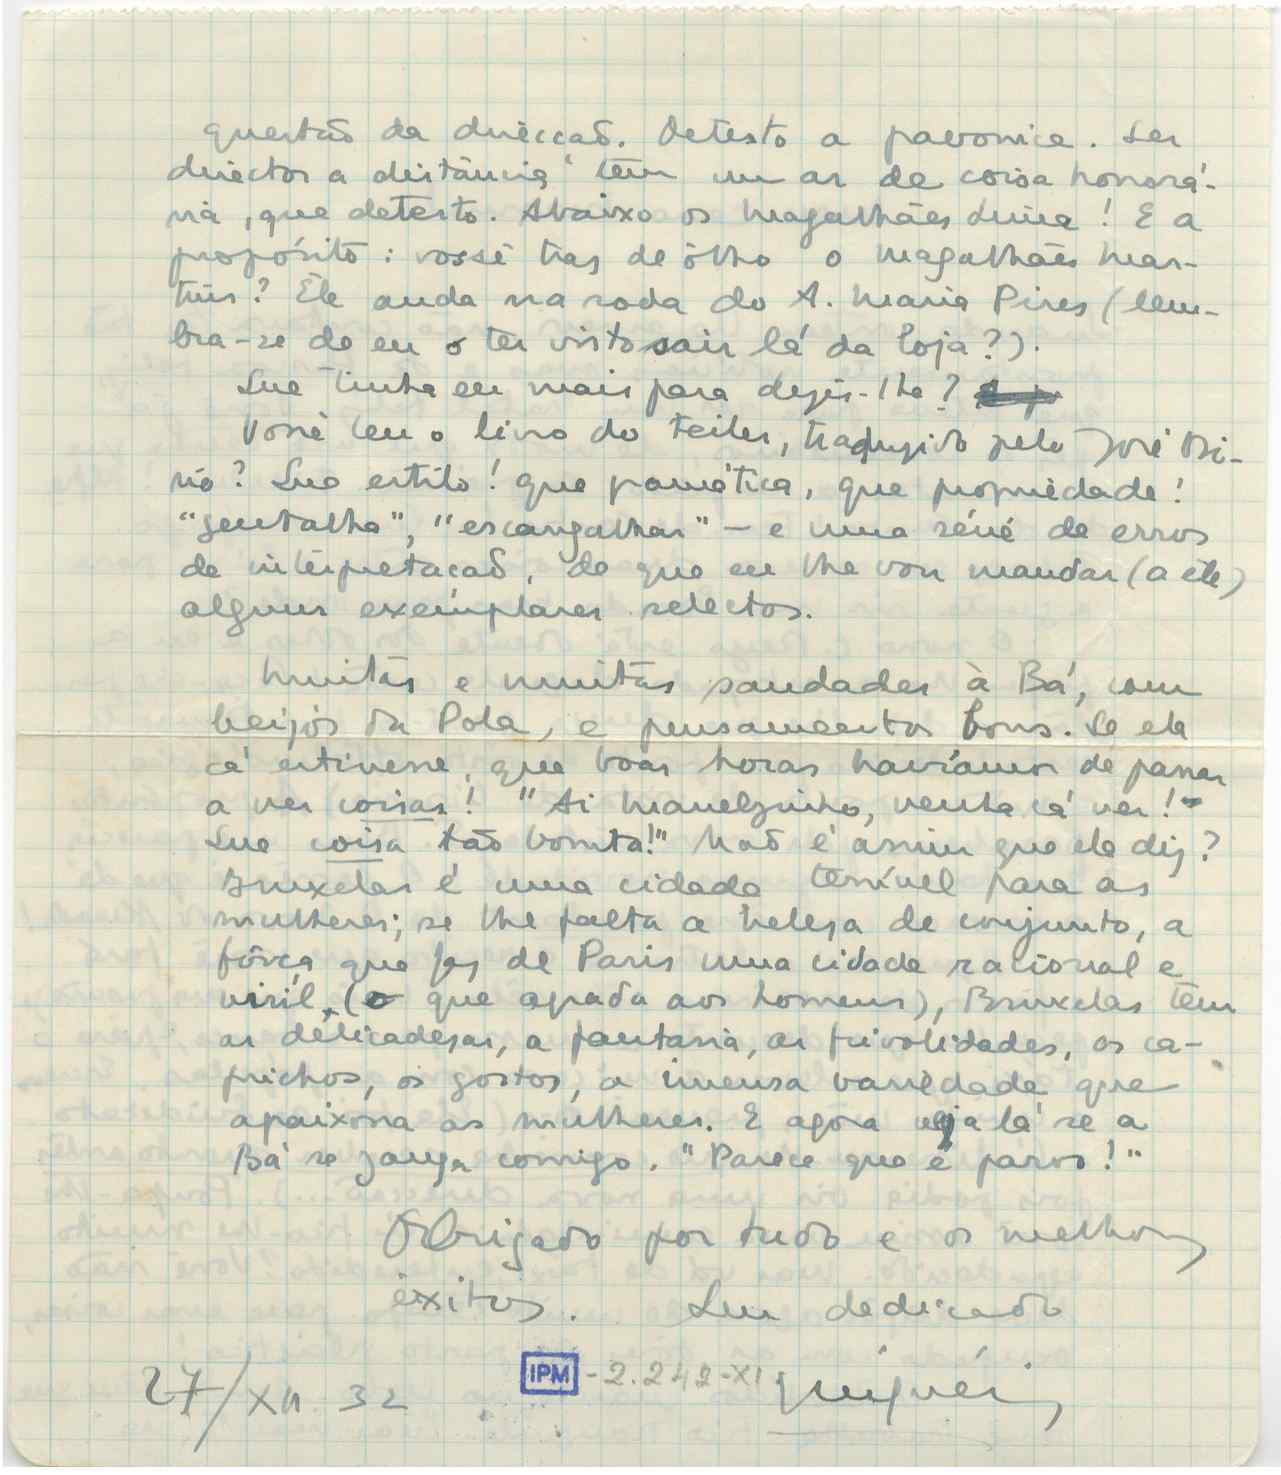 questão da direcção. Detesto a pavonice. Ser
director a distância tem um ar de coisa honorá-
ria, que detesto. Abaixo os Magalhães Lima! E a
propósito: vossê tras de ôlho o Magalhães Mar-
tins? Êle anda na roda do A. Maria Pires (lem-
bra-se de eu o ter visto sair lá da loja?).
Que tinha eu mais para dizer-lhe?
Você leu o livro do Feiler, traduzido pelo José
Que estilo! que gramática, que propriedade!
"gentalha", "escangalhar" — e uma série de erros
de interpretação, de que eu lhe vou mandar (a êle)
alguns exemplares selectos.
Muitas e muitas saudades à Bá, com
beijos da Pola, e pensamentos bons. Se ela
cá estivesse, que boas horas havíamos de passar
a ver coisas! "Ai Manelzinho, venha cá ver!"
Que coisa tão bonita!" Não é assim que ela diz?
Bruxelas é uma cidade terrível para as
mulheres; se lhe falta a beleza de conjunto, a
fôrça que faz de Paris uma cidade racional e
viril, (o que agrada aos homens), Bruxelas tem
as delicadezas, a fantasia, as frivolidades, os ca-
prichos, os gostos, a imensa variedade que
apaixona as mulheres. E agora veja lá se a
Bá se zanga comigo. "Parece que é parvo!"
Obrigado por tudo e os melhores
êxitos. Seu dedicado
Miguéis
27/XII 32
IPM -2.242-XI